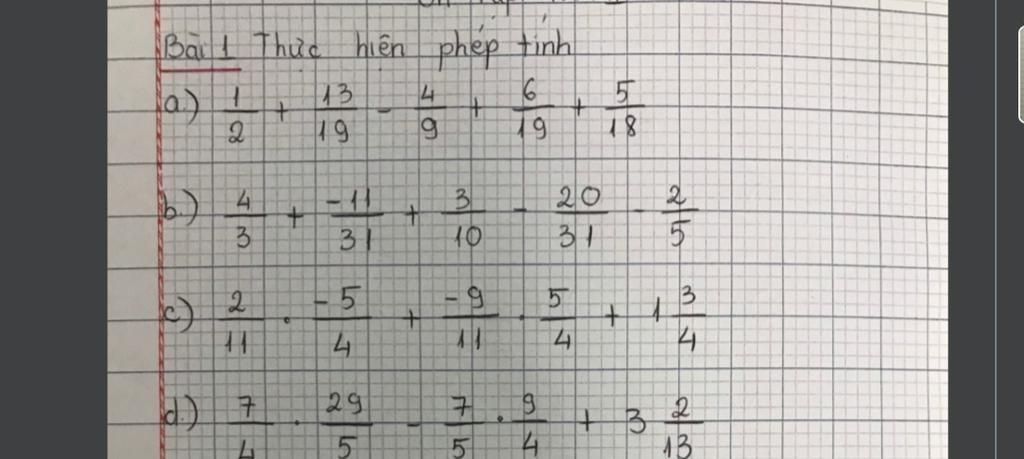 Bài 1 Thực hiện phép tính
a.) 1/2 + 13/19 - 4/9 + 6/19 + 5/18
b.) 4/3 + -11/31 + 3/10 - 20/31 - 2/5
c.) 2/11 . -5/4 + -9/11 . 5/4 + 1 3/4
d.) 7/4 . 29/5 - 7/5 . 9/4 + 3 2/13